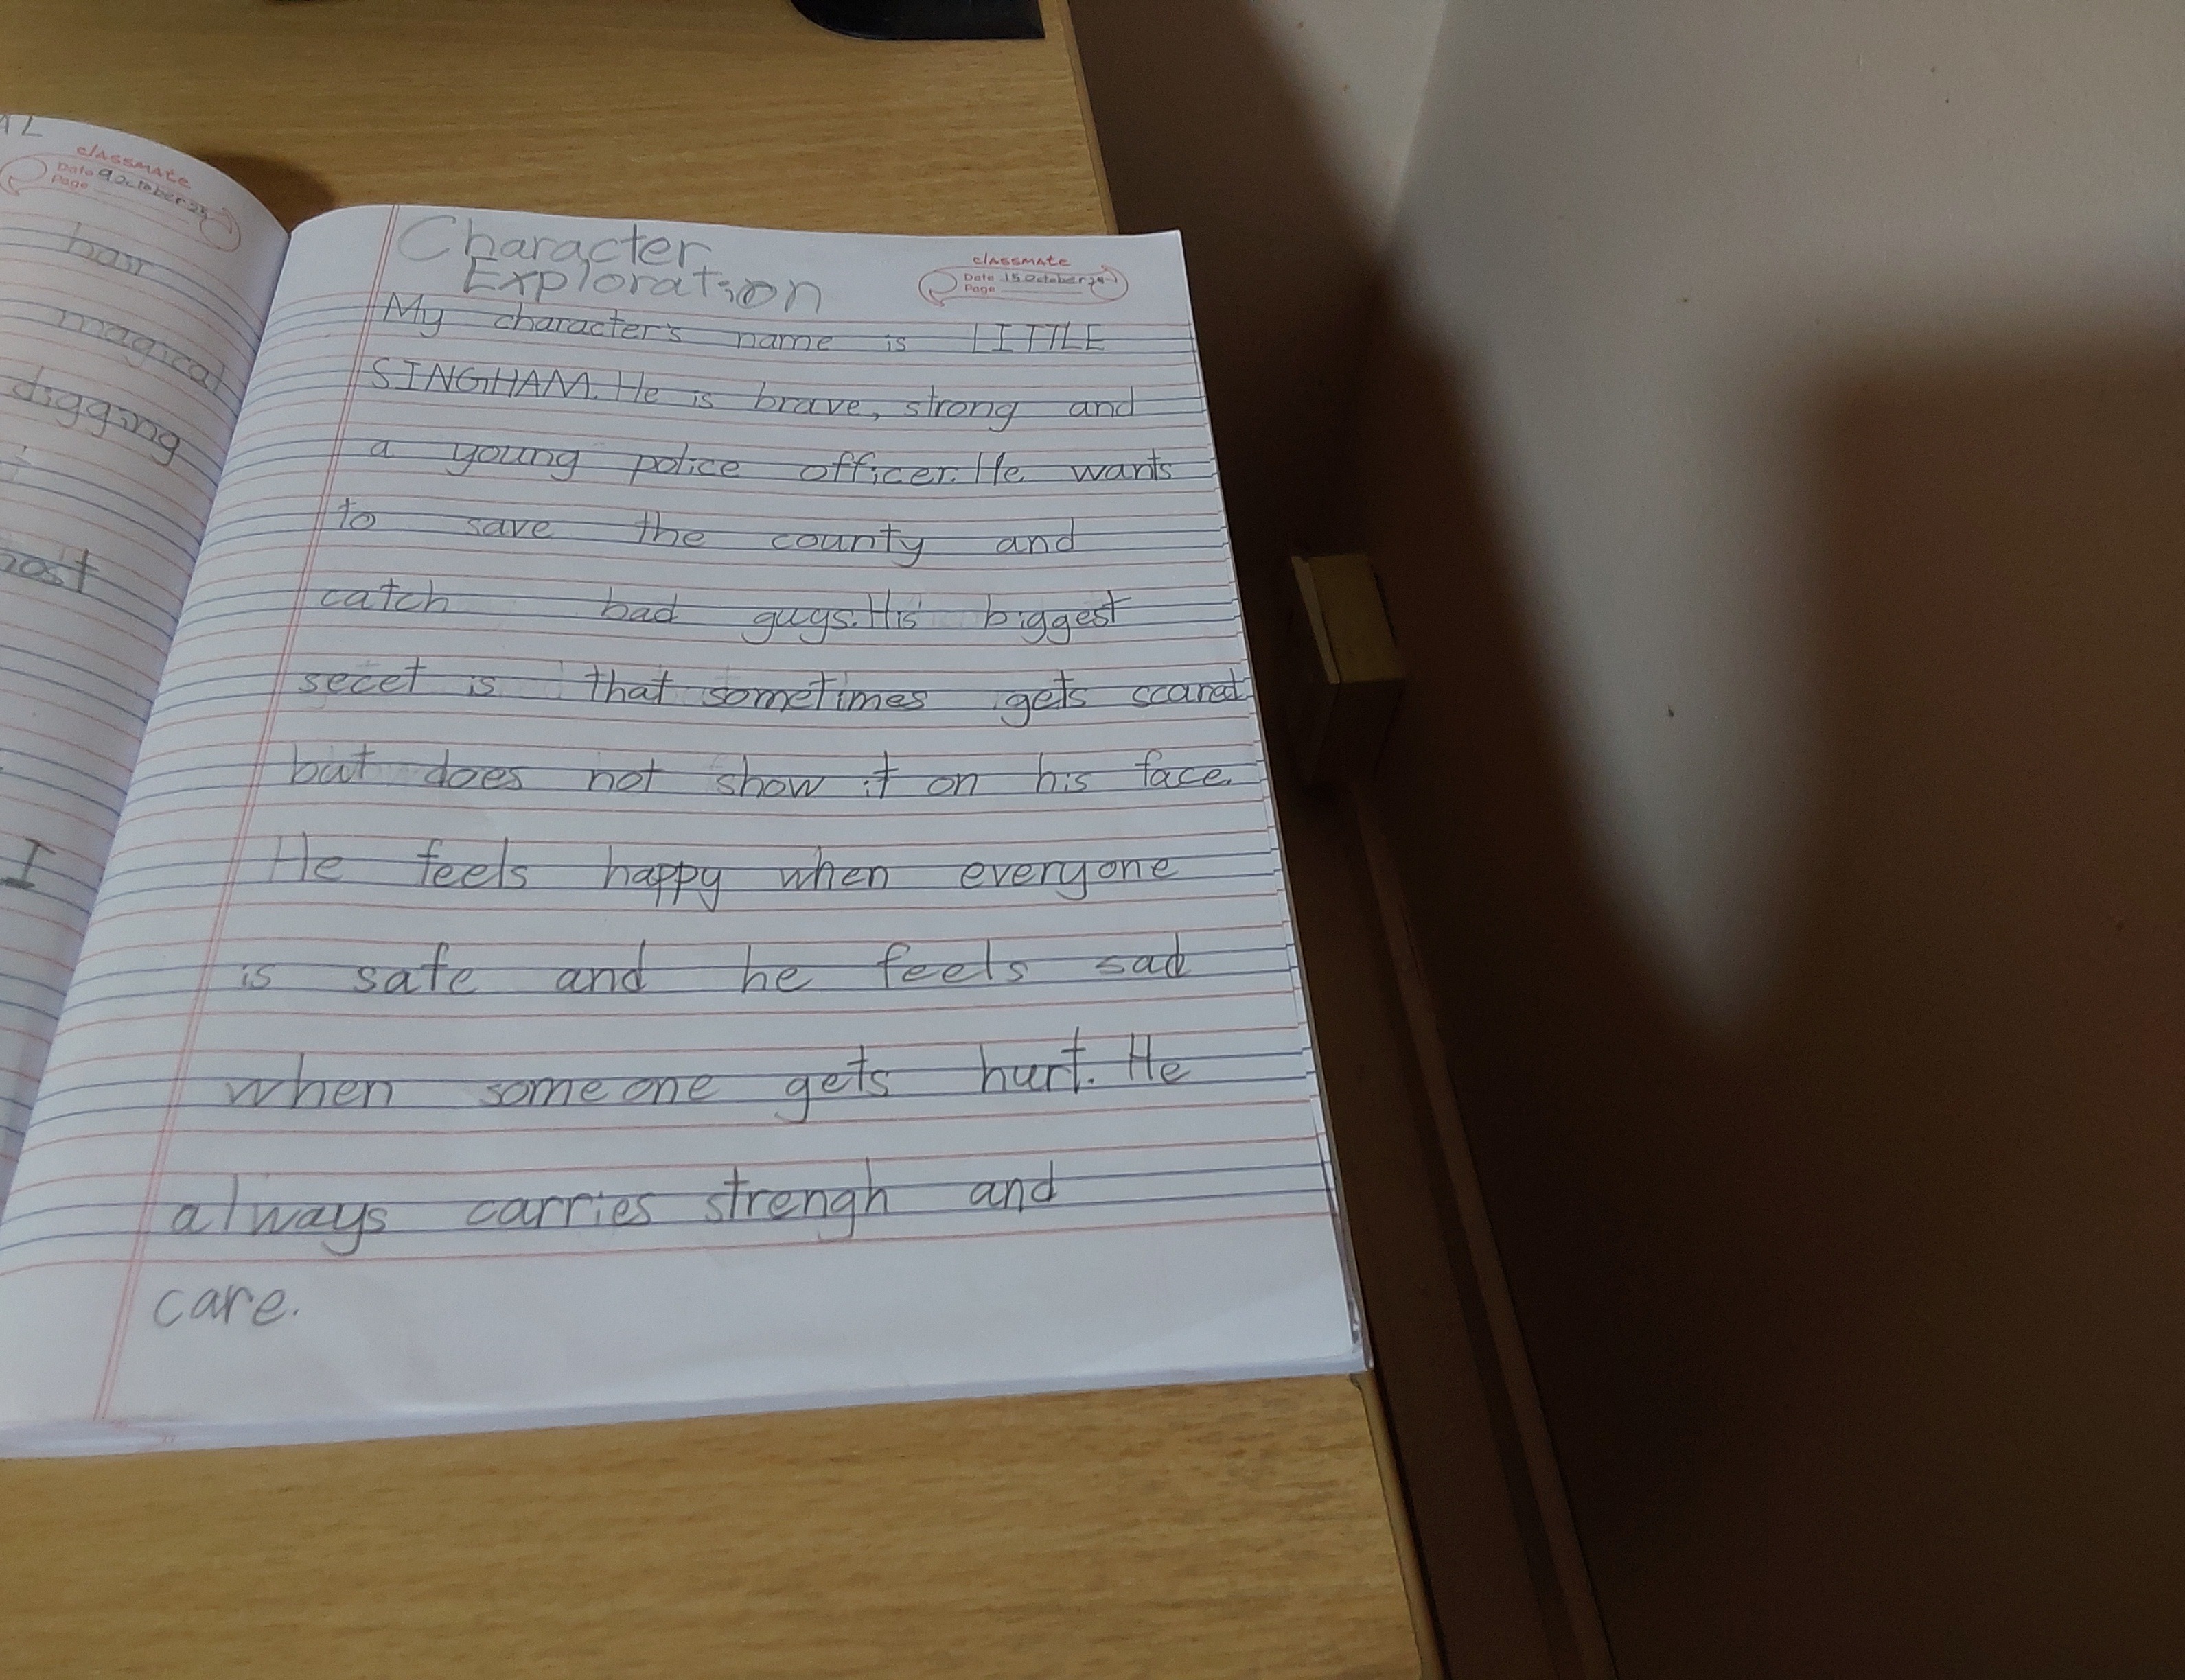 classmate
Date 9 October 25
Page
hair
magical
digging
I
Character
Exploration
classmate
Date 15 October
Page
My character's name is LITTLE
SINGHAM. He is brave, strong and
a young police officer. He wants
to save the county and
catch bad guys. His biggest
secet is that sometimes gets scared
but does not show it on his face.
He feels happy when everyone
is safe and he feels sad
when someone gets hurt. He
always carries strengh and
care.